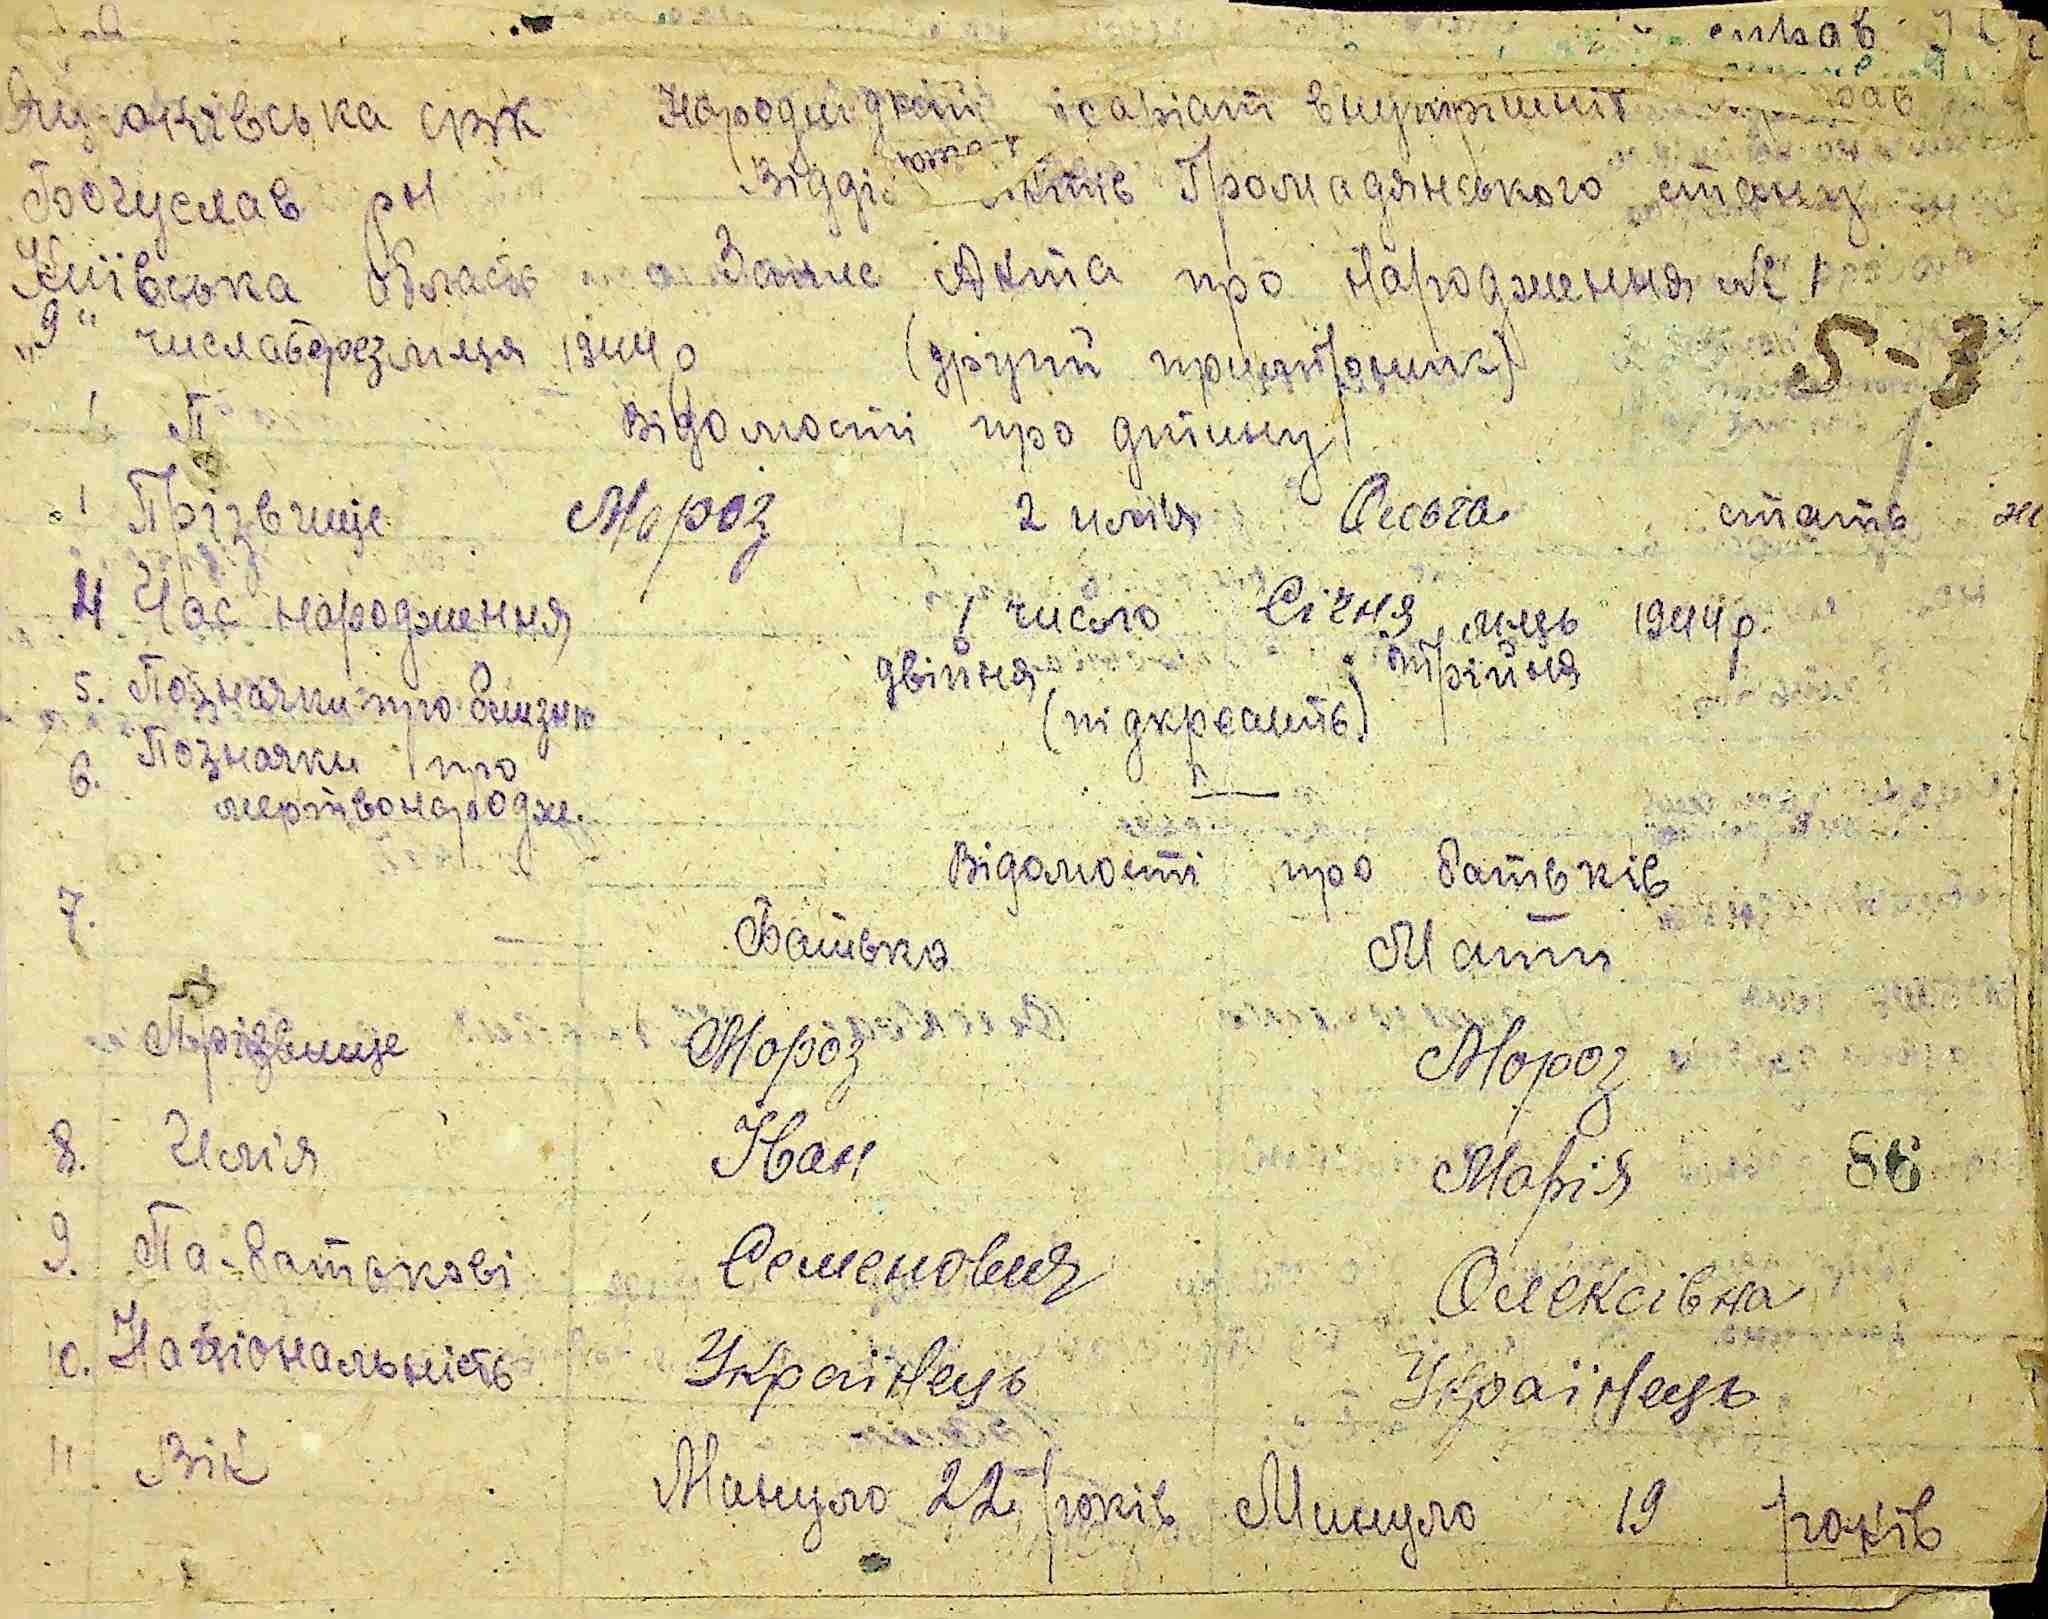 справ
сркк Народний комісаріат внутрішніх справ
Богуслав рн Відділ актів Громадянського стану
Київська область Запис Акта про народження № 1
"9" числа березня м-ця 1944 р (другий примірник) 5-3
Відомості про дитину
1 Прізвище Мороз 2 имія Ольга стать ж
4 Час народження 1 число Січня мць 1944 р.
5. Позначки про близню двійня; трійня
(підкреслить)
6. Позначки про
мертвонародж.
Відомості про батьків
7.
Батько Мати
Прізвище Мороз Мороз
8. Имія Іван Марія 86
9. Па-батькові Семенович Олексівна
10. Національність Українець Українець
11 Вік Минуло 22 років Минуло 19 років